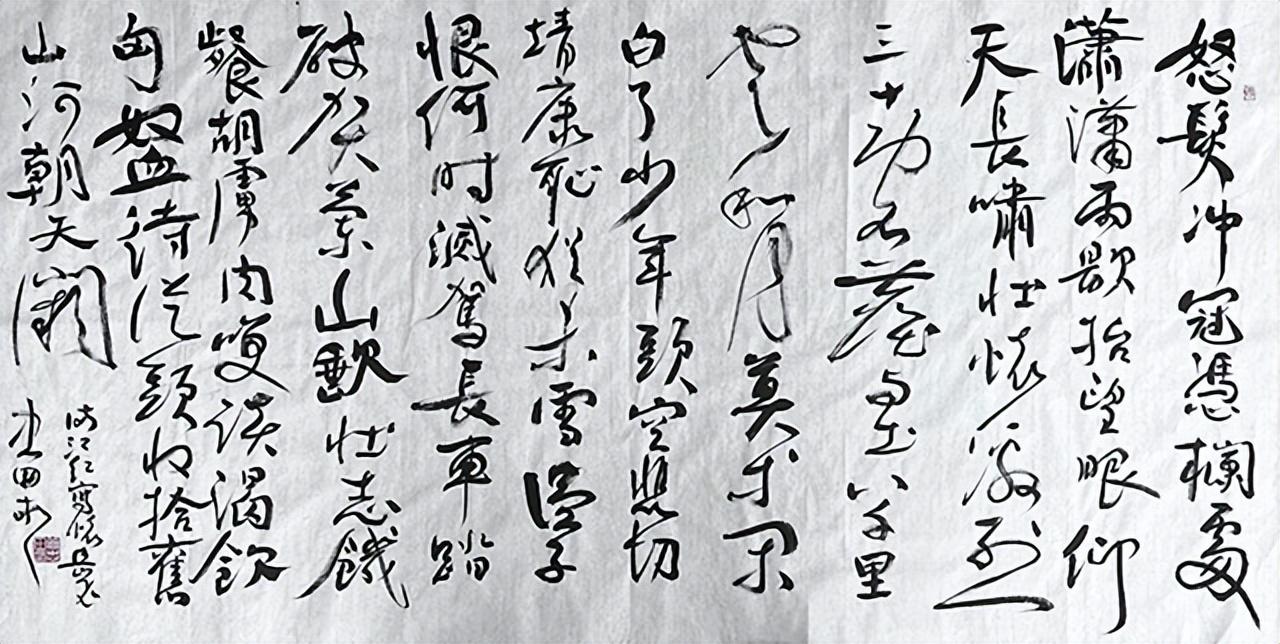 怒髮冲冠憑欄處
瀟瀟雨歇抬望眼仰
天長嘯壯懷激烈
三十功名塵與土八千里
路云和月莫等閑
白了少年頭空悲切
靖康恥猶未雪臣子
恨何时滅駕長車踏
破賀蘭山缺壯志饑
餐胡虜肉笑談渴飲
匈奴血待從頭收拾舊
山河朝天闕
滿江紅寫懷岳飛